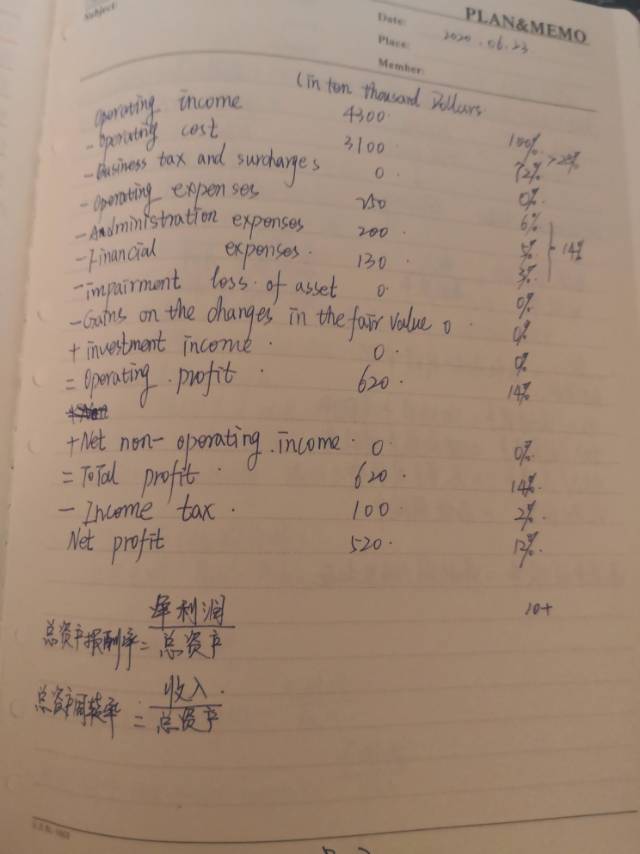 Subject:
PLAN&MEMO
Date: 2020.06.23
Place:
Member:
(in ten thousand Dollars
Operating income 4300. 100%
- Operating cost 3100. 72% >28%
- Business tax and surcharges 0. 0%
- Operating expenses 250 6%
- Administration expenses 200. 5% 14%
- Financial expenses. 130. 3%
- impairment loss. of asset 0. 0%
- Gains on the changes in the fair value 0. 0%
+ investment income. 0. 0%
= Operating. profit. 620. 14%
+ Net non-operating.income. 0. 0%
= Total profit. 620. 14%.
- Income tax. 100. 2%.
Net profit 520. 12%.
10+
总资产报酬率 = 净利润 / 总资产
总资产周转率 = 收入. / 总资产